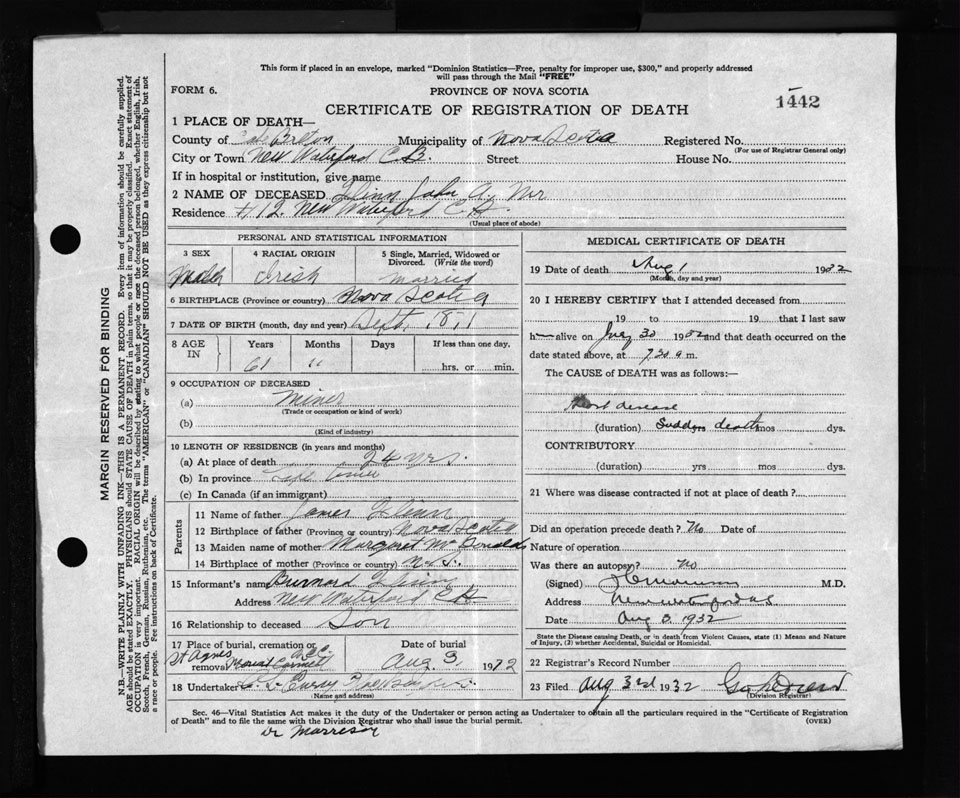 This form if placed in an envelope, marked "Dominion Statistics—Free, penalty for improper use, $300," and properly addressed
will pass through the Mail "FREE"
FORM 6.
PROVINCE OF NOVA SCOTIA
1442
CERTIFICATE OF REGISTRATION OF DEATH
1 PLACE OF DEATH—
County of Cape Breton Municipality of Nova Scotia Registered No.
(For use of Registrar General only)
City or Town New Waterford C.B. Street House No.
If in hospital or institution, give name
2 NAME OF DECEASED Flinn John A. Mr
Residence New Waterford C.B.
(Usual place of abode)
PERSONAL AND STATISTICAL INFORMATION
3 SEX 4 RACIAL ORIGIN 5 Single, Married, Widowed or Divorced. (Write the word)
Male Irish Married
6 BIRTHPLACE (Province or country) Nova Scotia
7 DATE OF BIRTH (month, day and year) Sept. 1871
8 AGE IN Years Months Days If less than one day.
61 " hrs. or min.
9 OCCUPATION OF DECEASED
(a) Miner
(Trade or occupation or kind of work)
(b)
(Kind of industry)
10 LENGTH OF RESIDENCE (in years and months)
(a) At place of death 24 yrs.
(b) In province Life time
(c) In Canada (if an immigrant)
Parents
11 Name of father James Flinn
12 Birthplace of father (Province or country) Nova Scotia
13 Maiden name of mother Margret McDonalds
14 Birthplace of mother (Province or country) N.S.
15 Informant's name Burnard Flinn
Address New Waterford CB
16 Relationship to deceased Son
17 Place of burial, cremation or removal St Agnes Mount Carmel Date of burial
Aug. 3 1932
18 Undertaker
(Name and address)
MEDICAL CERTIFICATE OF DEATH
19 Date of death Aug 1 1932
(Month, day and year)
20 I HEREBY CERTIFY that I attended deceased from
19 to 19 that I last saw
h alive on July 30 1932 and that death occurred on the
date stated above, at 7.30 a m.
The CAUSE of DEATH was as follows:—
Heart disease
(duration) Sudden death mos dys.
CONTRIBUTORY
(duration) yrs mos dys.
21 Where was disease contracted if not at place of death?
Did an operation precede death? No Date of
Nature of operation
Was there an autopsy? No
(Signed) M.D.
Address New Waterford
Date Aug 3. 1932
State the Disease causing Death, or in death from Violent Causes, state (1) Means and Nature
of Injury, (2) whether Accidental, Suicidal or Homicidal.
22 Registrar's Record Number
23 Filed Aug 3rd 1932
(Division Registrar)
Sec. 46—Vital Statistics Act makes it the duty of the Undertaker or person acting as Undertaker to obtain all the particulars required in the "Certificate of Registration
of Death" and to file the same with the Division Registrar who shall issue the burial permit.
(OVER)
Dr Morrison
MARGIN RESERVED FOR BINDING
N.B.—WRITE PLAINLY WITH UNFADING INK—THIS IS A PERMANENT RECORD. Every item of information should be carefully supplied.
AGE should be stated EXACTLY. PHYSICIANS should STATE CAUSE OF DEATH in plain terms, so that it may be properly classified. Exact statement of
OCCUPATION is very important. RACIAL ORIGIN will be described by stating to what people or race the deceased person belonged, whether English, Irish,
Scotch, French, German, Russian, Ruthenian, etc. The terms "AMERICAN" or "CANADIAN" SHOULD NOT BE USED as they express citizenship but not
a race or people. See instructions on back of Certificate.